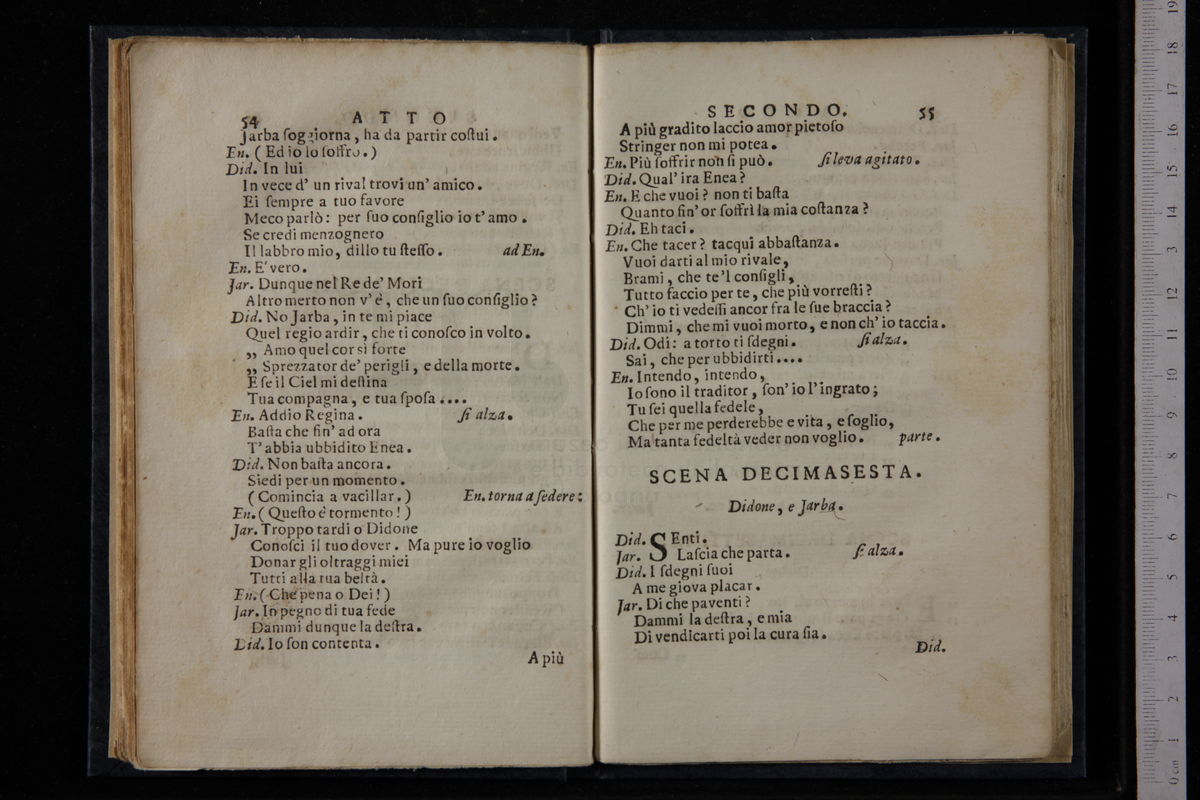 54 ATTO
Jarba ſoggiorna, ha da partir coſtui.
En. (Ed io lo ſoffro.)
Did. In lui
In vece d' un rival trovi un' amico.
Ei ſempre a tuo favore
Meco parlò: per ſuo conſiglio io t' amo.
Se credi menzognero
Il labbro mio, dillo tu ſteſſo. ad En.
En. E' vero.
Jar. Dunque nel Re de' Mori
Altro merto non v' è, che un ſuo conſiglio?
Did. No Jarba, in te mi piace
Quel regio ardir, che ti conoſco in volto.
„ Amo quel cor sì forte
„ Sprezzator de' perigli, e della morte.
E ſe il Ciel mi deſtina
Tua compagna, e tua ſpoſa....
En. Addio Regina. ſi alza.
Baſta che fin' ad ora
T' abbia ubbidito Enea.
Did. Non baſta ancora.
Siedi per un momento.
(Comincia a vacillar.) En. torna a ſedere:
En. (Queſto è tormento!)
Jar. Troppo tardi o Didone
Conoſci il tuo dover. Ma pure io voglio
Donar gli oltraggi miei
Tutti alla tua beltà.
En. (Che pena o Dei!)
Jar. In pegno di tua fede
Dammi dunque la deſtra.
Did. Io ſon contenta.
A più
SECONDO. 55
A più gradito laccio amor pietoſo
Stringer non mi potea.
En. Più ſoffrir non ſi può. ſi leva agitato.
Did. Qual' ira Enea?
En. E che vuoi? non ti baſta
Quanto fin' or ſoffrì la mia coſtanza?
Did. Eh taci.
En. Che tacer? tacqui abbaſtanza.
Vuoi darti al mio rivale,
Brami, che te 'l conſigli,
Tutto faccio per te, che più vorreſti?
Ch' io ti vedeſſi ancor fra le ſue braccia?
Dimmi, che mi vuoi morto, e non ch' io taccia.
Did. Odi: a torto ti ſdegni. ſi alza.
Sai, che per ubbidirti....
En. Intendo, intendo,
Io ſono il traditor, ſon' io l' ingrato;
Tu ſei quella fedele,
Che per me perderebbe e vita, e ſoglio,
Ma tanta fedeltà veder non voglio. parte.
SCENA DECIMASESTA.
Didone, e Jarba.
Did. SEnti.
Jar. Laſcia che parta. ſi alza.
Did. I ſdegni ſuoi
A me giova placar.
Jar. Di che paventi?
Dammi la deſtra, e mia
Di vendicarti poi la cura ſia.
Did.